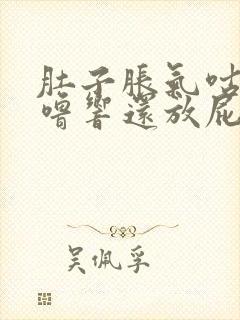 肚子胀氣咕
噜響還放屁
吴佩孚